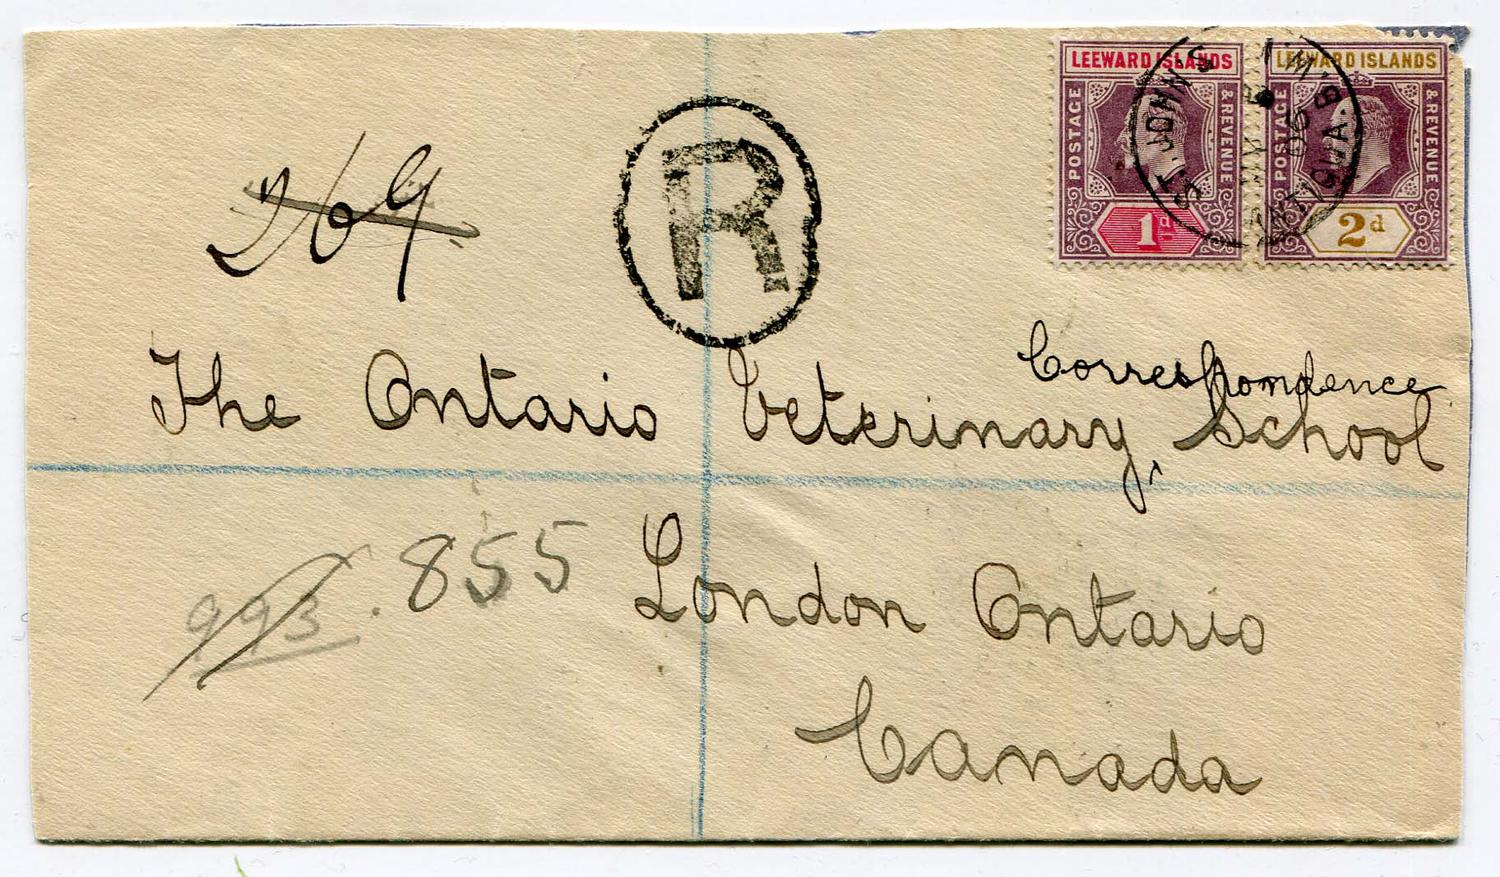 LEEWARD ISLANDS
POSTAGE & REVENUE
1d
LEEWARD ISLANDS
POSTAGE & REVENUE
2d
ST. JOHN'S
MY
06
ANTIGUA. B.W.I.
R
269
Correspondence
The Ontario Veterinary, School
993 . 855
London Ontario
Canada